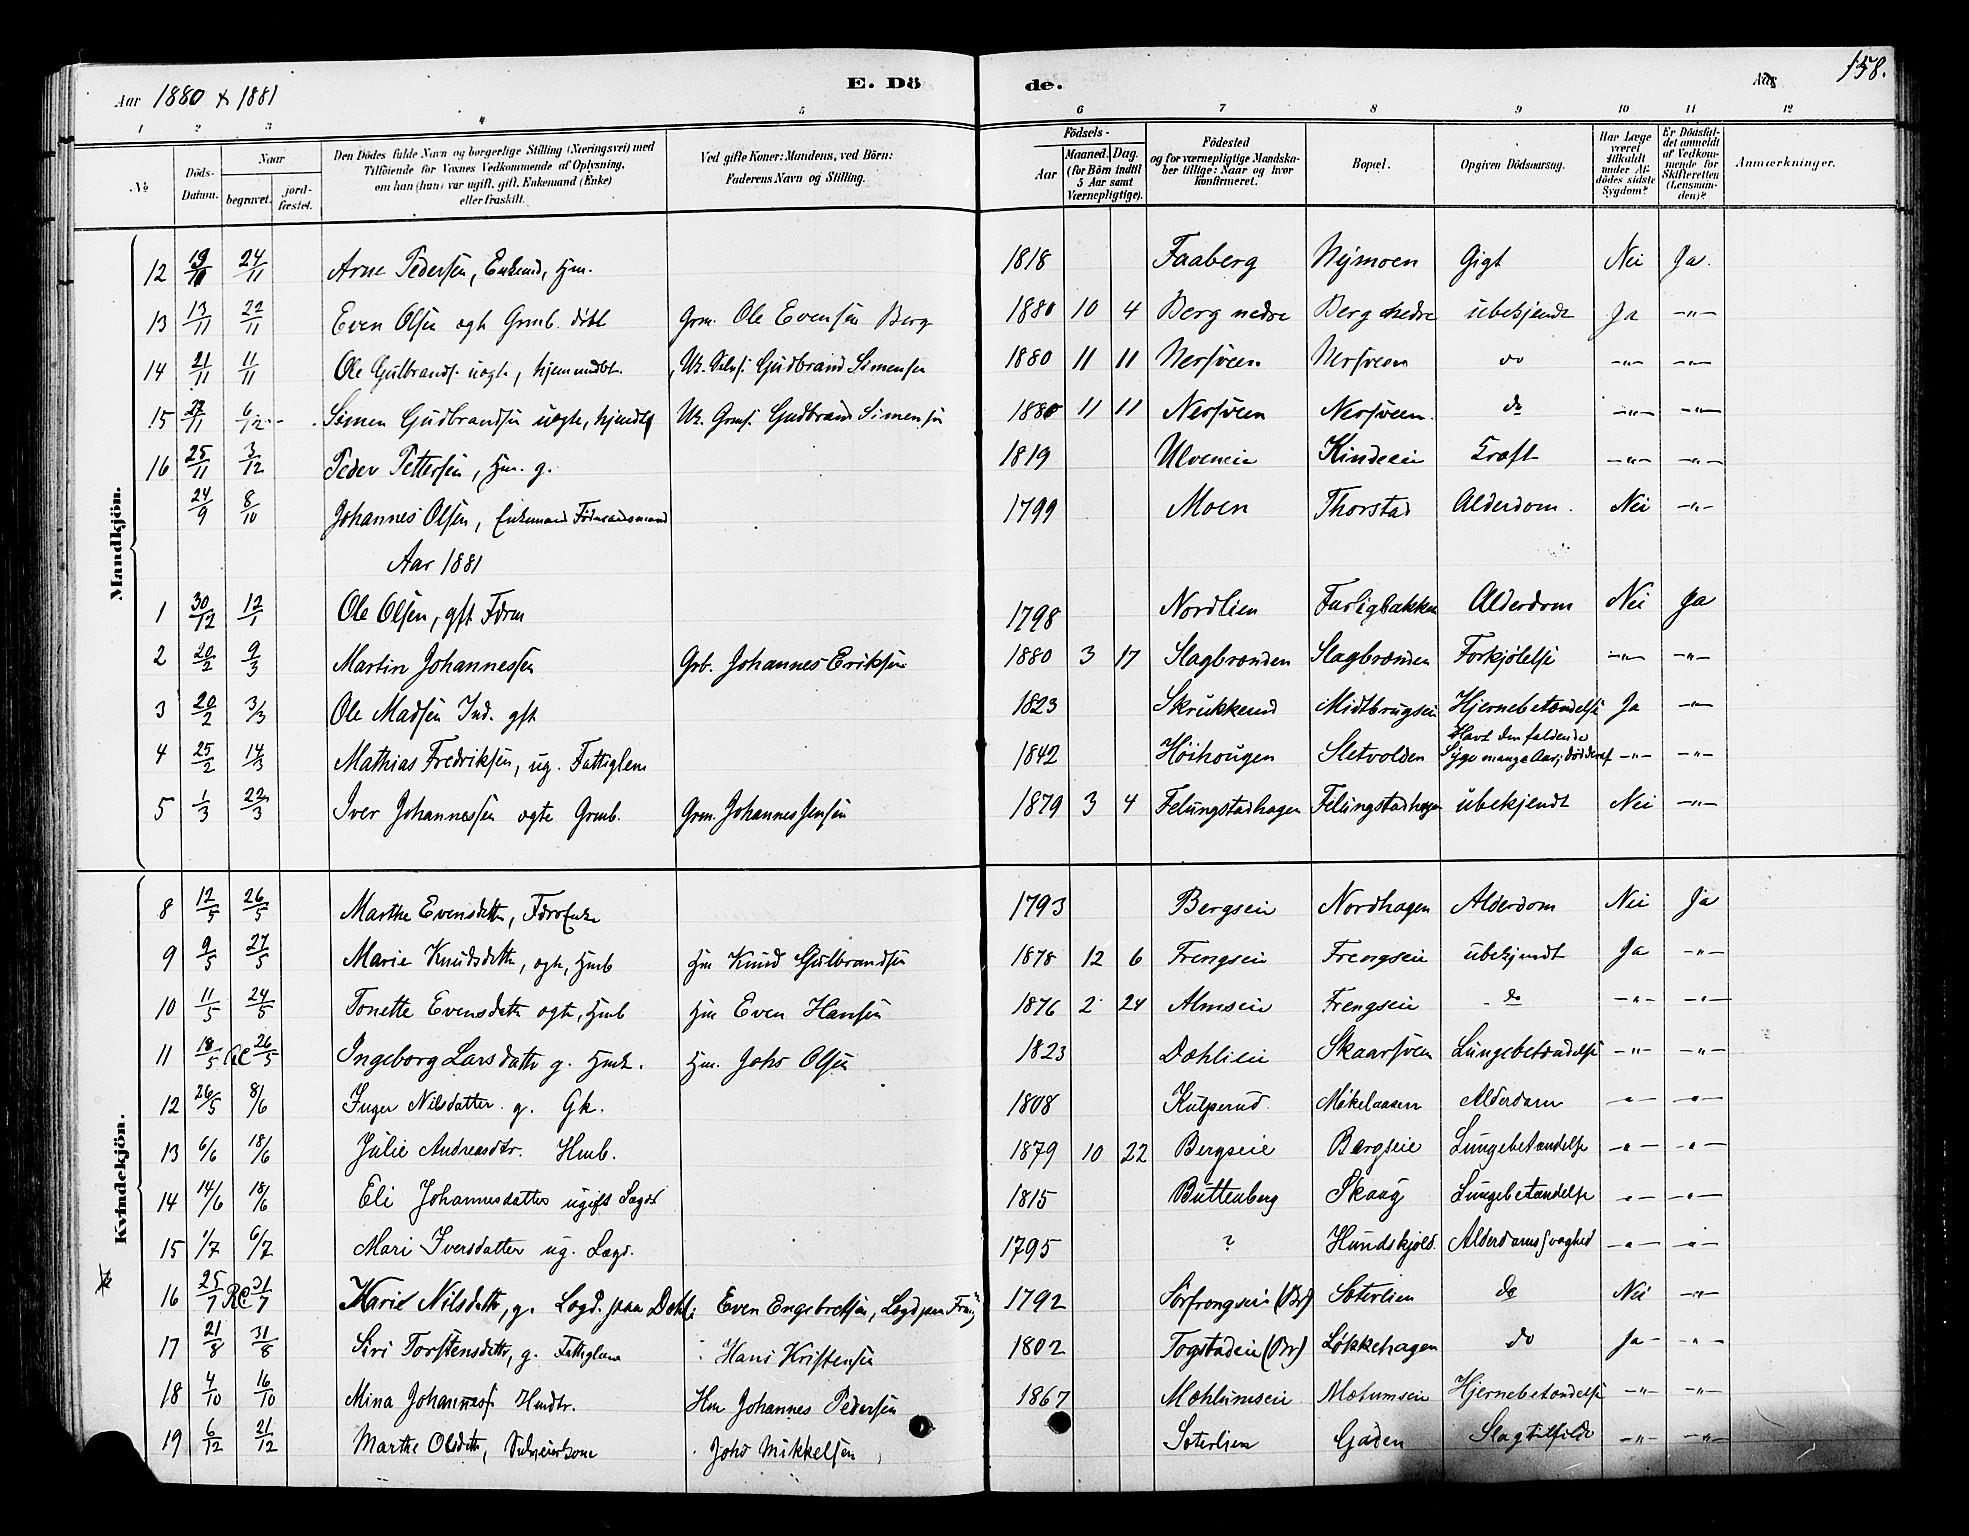 Aar 1880 & 1881 E. Dö de. Aar 158.
1 2 3 4 5 6 7 8 9 10 11 12
No
Döds-Datum.
Naar begravet. jord-fæstet.
Den Dödes fulde Navn og borgerlige Stilling (Næringsvei) med
Tilföiende for Voxnes Vedkommende af Oplysning,
om han (hun) var ugift, gift, Enkemand (Enke)
eller fraskilt.
Ved gifte Koner: Mandens, ved Börn:
Faderens Navn og Stilling.
Födsels-
Aar Maaned. Dag.
(for Börn indtil
5 Aar samt
Værnepligtige).
Födested
og for værnepligtige Mandska-
ber tillige: Naar og hvor
konfirmeret.
Bopæl.
Opgiven Dödsaarsag.
Har Læge
været
tilkaldt
under Af-
dödes sidste
Sygdom?
Er Dödsfal-
det anmeldt
af Vedkom-
mende for
Skifteretten
(Lensman-
den)?
Anmærkninger.
Mandkjön.
12 19/11 24/11 Arne Pedersen, Enkemd, Hjm. 1818 Faaberg Nymoen Gigt Nei Ja.
13 13/11 22/11 Even Olsen ægte Grmb. dibt Grm. Ole Evensen Berg 1880 10 4 Berg nedre Berg nedre ubekjendt Ja -"-
14 21/11 11/11 Ole Gulbrands. uægte, hjemmedbt. Gudbrand Simensen 1880 11 11 Nersveen Nersveen do -"- -"-
15 6/12 Simen Gudbrandsen uægte, hjmdbt Gudbrand Simensen 1880 11 11 Nersveen Nersveen. do -"- -"-
16 25/11 3/12 Peder Pettersen, Hjm. g. 1819 Ulveneie Kindseie Kræft -"- -"-
24/9 8/10 Johannes Olsen, Enkemand Föderaadsmand 1799 Moen Thorstad Alderdom. Nei -"-
Aar 1881
1 30/12 12/1 Ole Olsen, gft Fdrm 1798 Nordlien Farligbakken Alderdom Nei Ja
2 20/2 9/3 Martin Johannessen Grb. Johannes Eriksen 1880 3 17 Slagbrenden Slagbrenden Forkjølelse -"- -"-
3 20/2 3/3 Ole Madsen Ind. gft 1823 Skrukkerud Midtbrugseie Hjernebetændelse Ja -"-
4 25/2 14/3 Mathias Fredriksen, ug. Fattiglem 1842 Høihougen Sletvolden Havt den faldende
Syge mange Aar; død deraf -"- -"-
5 1/3 22/3 Iver Johannessen ægte Grmb. Grm. Johannes Jensen 1879 3 4 Felungstadhagen Felungstadhagen ubekjendt Nei -"-
Kvindekjön.
8 12/5 26/5 Marthe Evensdatter, FdrdEnke 1793 Bergseie Nordhagen Alderdom Nei Ja
9 9/5 27/5 Marie Knudsdatter, ægte, Hjmb Hjm Knud Gulbrandsen 1878 12 6 Frengseie Frengseie ubekjendt Ja -"-
10 11/5 24/5 Tonette Evensdatter ægte, Hjmb Hjm Even Hansen 1876 2 24 Almseie Frengseie do -"- -"-
11 18/5 26/5 Ingeborg Larsdatter g. Hjmk. Hjm. Johs Olsen 1823 Dæhlieie Skaarsveen Lungebetændelse -"- -"-
12 26/5 8/6 Inger Nilsdatter g. Gk. 1808 Kulperud Møkelaasen Alderdom -"- -"-
13 6/6 18/6 Julie Andreasdtr. Hmb. 1879 10 22 Bergseie Bergseie Lungebetændelse -"- -"-
14 14/6 18/6 Eli Johannesdatter ugift Lægd 1815 Buttenberg Skaug Lungebetændelse -"- -"-
15 1/7 6/7 Mari Iversdatter ug. Lægd. 1795 ? Hundskjold. Alderdomssvaghed -"- -"-
16 25/7 31/7 Karie Nilsdatter, g. Lægd. paa Dehli Even Engebretsen, Lægd paa 1792 Sørfrongseie (Br) Sæterlien do Nei -"-
17 21/8 31/8 Siri Torstensdatter, g. Fattiglem Hans Kristensen 1802 Togstadeie (Br) Løkkehagen do Ja -"-
18 4/10 16/10 Mina Johannesd. Hmdtr. Hm Johannes Pedersen 1867 Mæhlumseie Mælumseie Hjernebetændelse -"- -"-
19 6/12 21/12 Marthe Olsdatter, Selveierkone Johs Mikkelsen Sæterlien Gaden Slagtilfælde -"- -"-